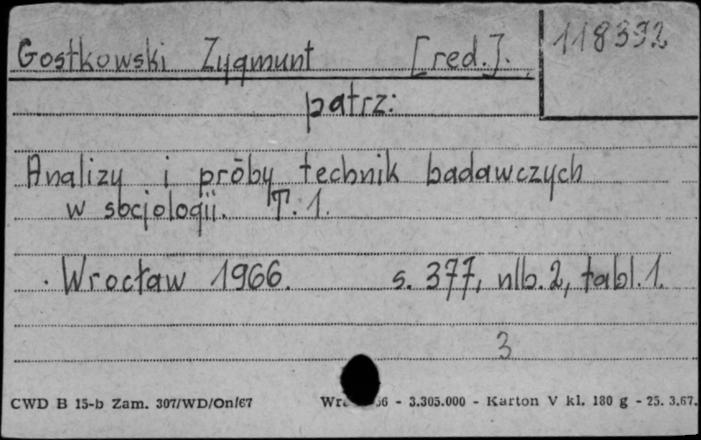 Gostkowski Zygmunt [red.].
118392
patrz:
Analizy i próby technik badawczych
w socjologii. T. 1.
Wrocław 1966. s. 377, nlb. 2, tabl. 1.
3
CWD B 15-b Zam. 307/WD/On/67 66 - 3.305.000 - Karton V kl. 180 g - 25. 3.67.